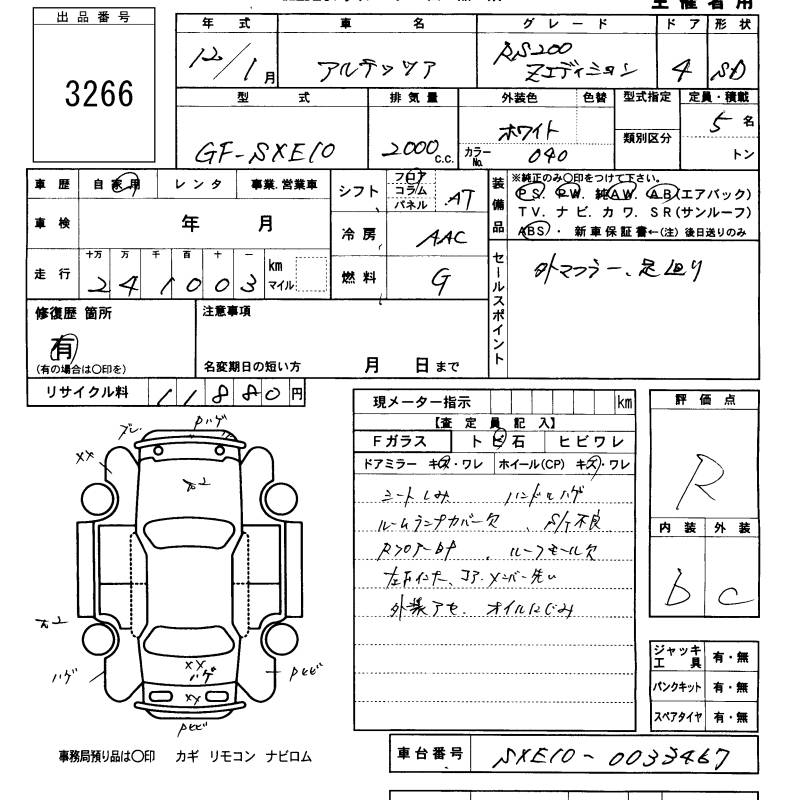 出品番号
3266
年式 車名 グレード ドア 形状
12/1月 アルテッツァ RS200 Zエディション 4 SD
型式 排気量 外装色 色替 型式指定 定員・積載
GF-SXE10 2000 c.c. ホワイト 5名
カラーNo. 040 類別区分 トン
車歴 自家用 レンタ 事業.営業車
車検 年 月
走行 十万 万 千 百 十 一 km マイル
241003
シフト フロア コラム パネル AT
冷房 AAC
燃料 G
装備品
※純正のみ〇印をつけて下さい。
PS. PW. 純AW. AB(エアバック)
TV. ナビ. カワ. SR(サンルーフ)
ABS・ 新車保証書←(注)後日送りのみ
セールスポイント
外マフラー、足廻り
修復歴 箇所
有
(有の場合は〇印を)
注意事項
名変期日の短い方 月 日まで
リサイクル料 11880円
現メーター指示 km
【査定員記入】
Fガラス トビ石 ヒビワレ
ドアミラー キズ・ワレ ホイール(CP) キズ・ワレ
シートしみ ハンドルハゲ
ルームランプカバー欠、S/T不良
RフロアーBP、ルーフモール欠
コア.メンバー先い
外装アセ、オイルにじみ
評価点
R
内装 外装
b C
ジャッキ工具 有・無
パンクキット 有・無
スペアタイヤ 有・無
Pハゲ
XX
ハゲ
XX
ハゲ
XY
Pヒビ
Pヒビ
事務局預り品は〇印 カギ リモコン ナビロム
車台番号 SXE10-0033467